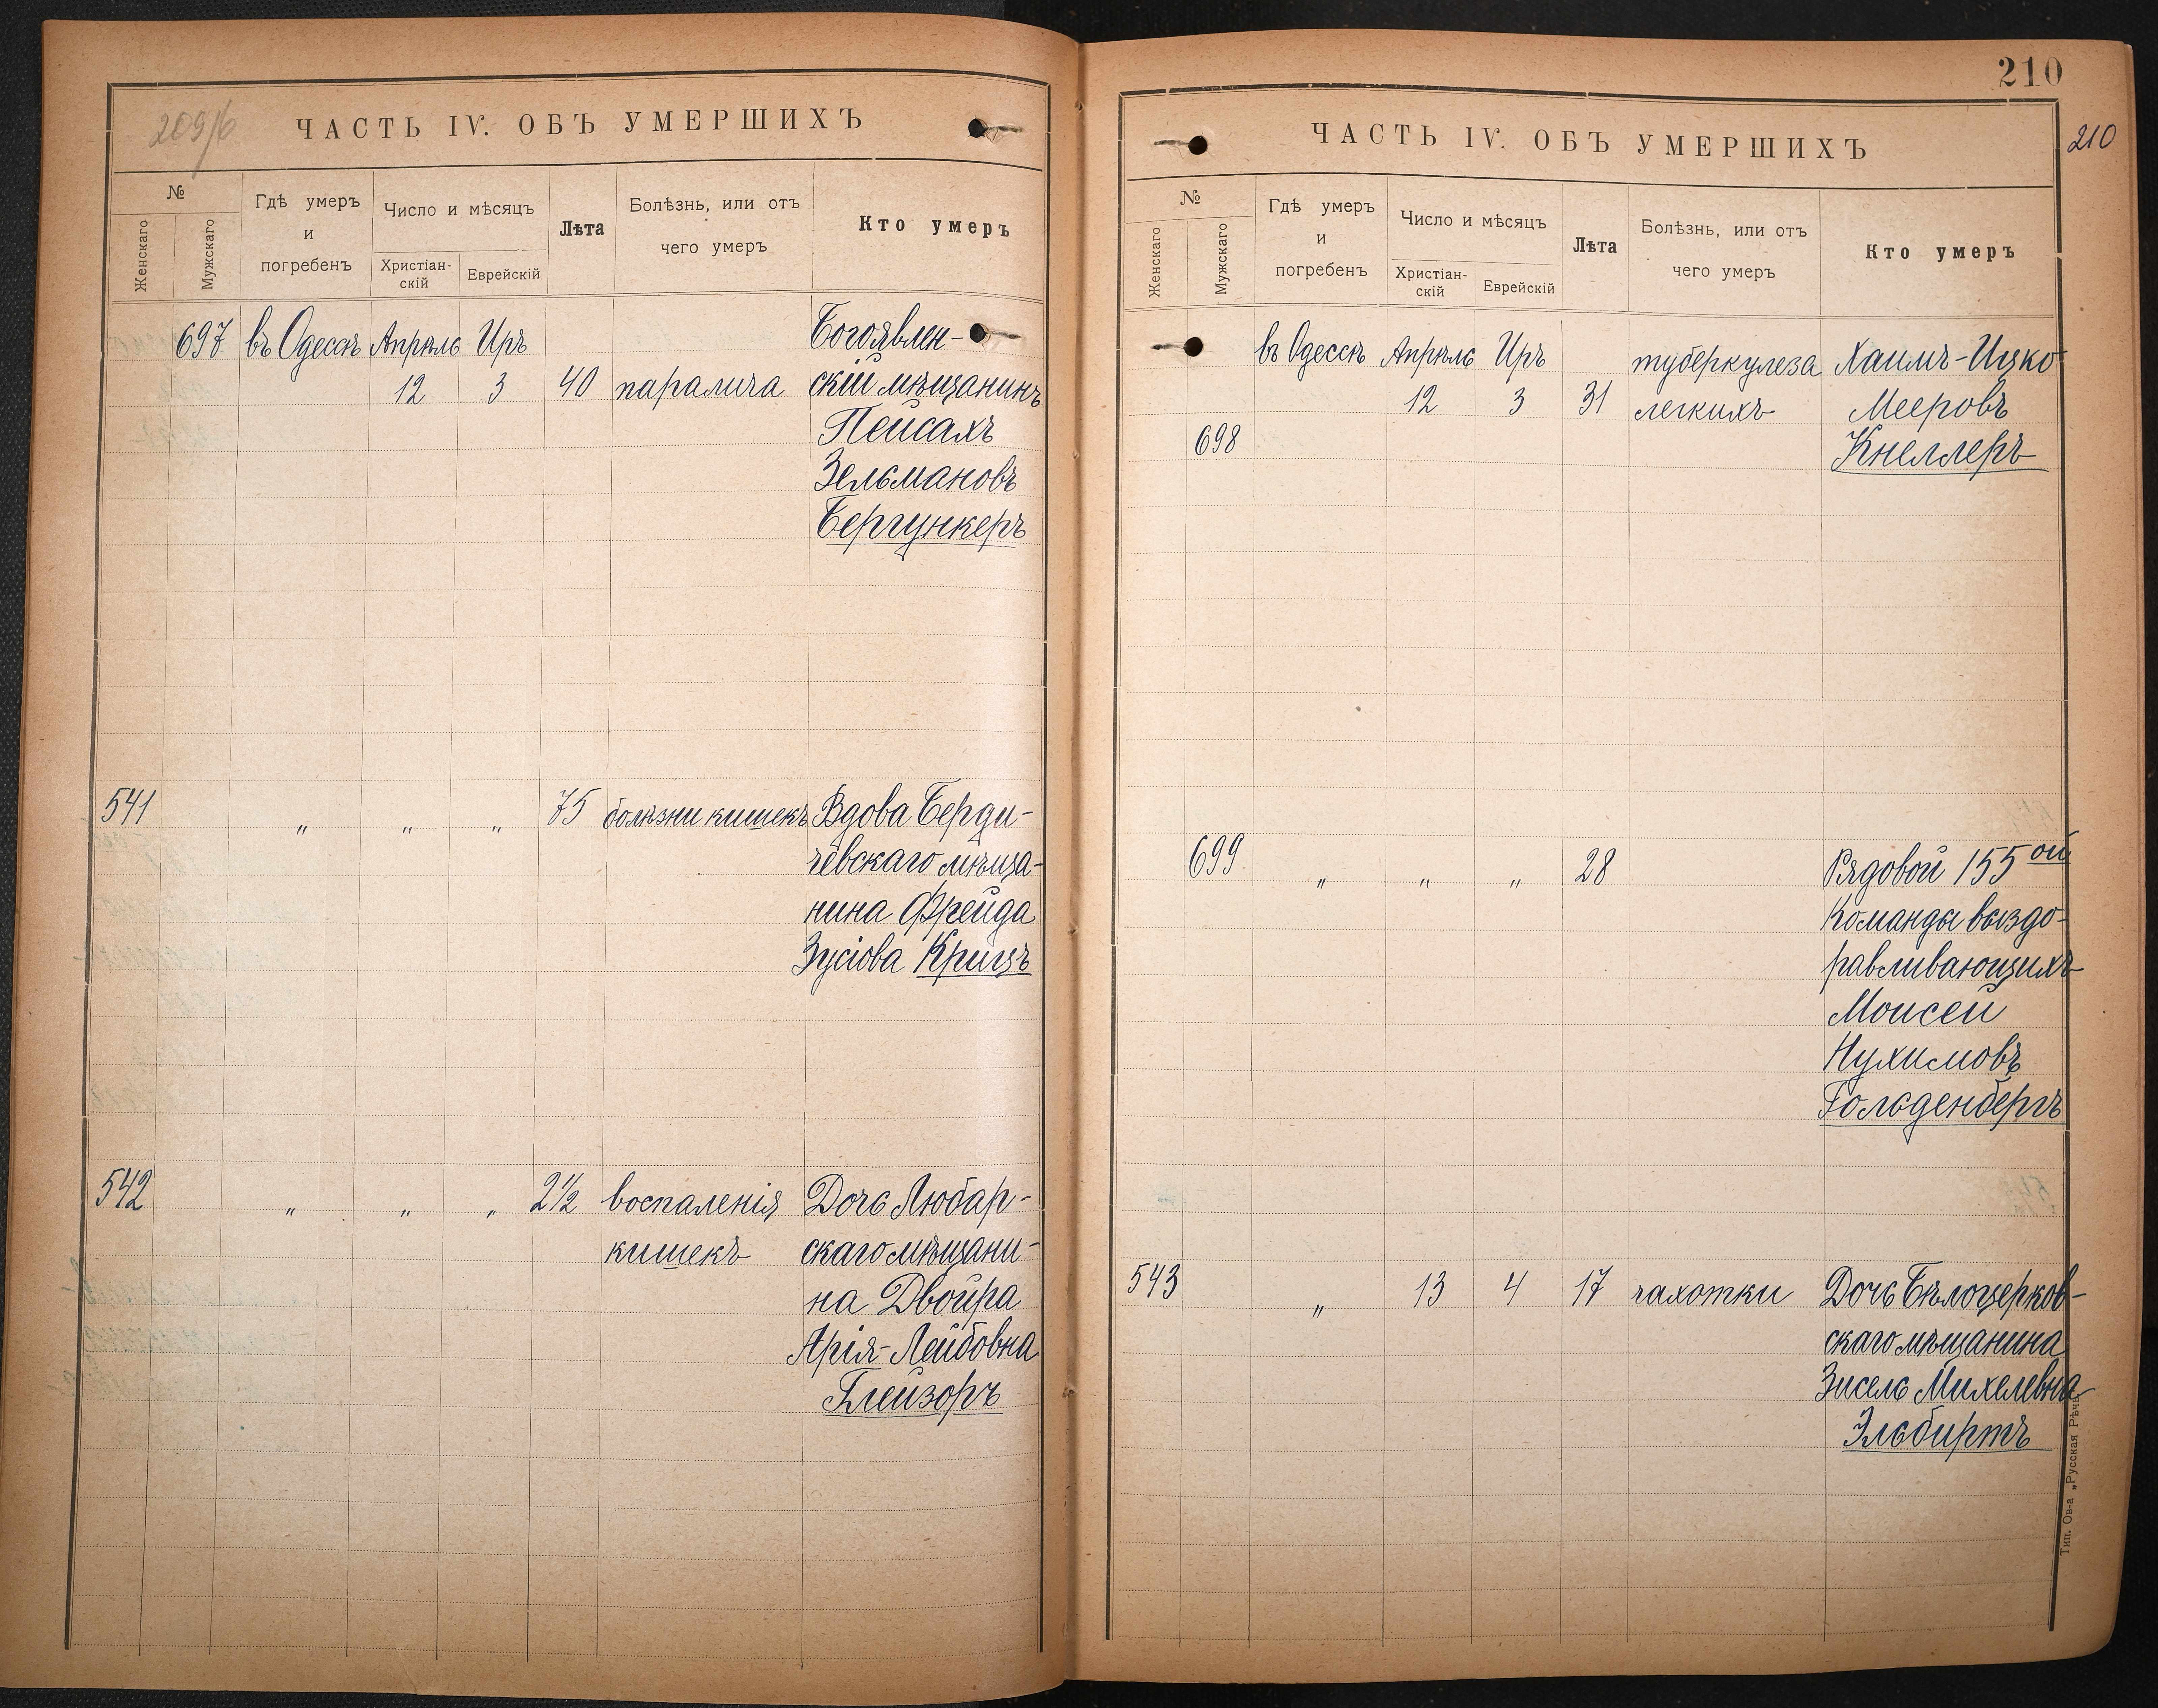 209/б
ЧАСТЬ IV. ОБЪ УМЕРШИХЪ
№
Женскаго
Мужскаго
Гдѣ умеръ
и
погребенъ
Число и мѣсяцъ
Христіан-
скій
Еврейскій
Лѣта
Болѣзнь, или отъ
чего умеръ
Кто умеръ
697 въ Одессѣ Апрѣль Иръ Богоявлен-
12 3 40 паралича скій мѣщанинъ
Пейсахъ
Зельмановъ
Бергункеръ
541 " " " 75 болѣзни кишекъ Вдова Берди-
чевскаго мѣща-
нина Фрейда
Зусіова Крицъ
542 " " " 2½ воспаленія Дочь Любар-
кишекъ скаго мѣщани-
на Двойра
Арія-Лейбовна
Глейзоръ
210
210
ЧАСТЬ IV. ОБЪ УМЕРШИХЪ
№
Женскаго
Мужскаго
Гдѣ умеръ
и
погребенъ
Число и мѣсяцъ
Христіан-
скій
Еврейскій
Лѣта
Болѣзнь, или отъ
чего умеръ
Кто умеръ
въ Одессѣ Апрѣль Иръ туберкулеза Хаимъ-Ицко
12 3 31 легкихъ Мееровъ
698 Кнеллеръ
699 " " " 28 Рядовой 155ой
Команды выздо-
равливающихъ
Моисей
Нухимовъ
Гольденбергъ
543 " 13 4 17 чахотки Дочь Бѣлоцерков-
скаго мѣщанина
Зисель Михелевна
Эльбиртъ
Тип. Ов-а „Русская Рѣчь